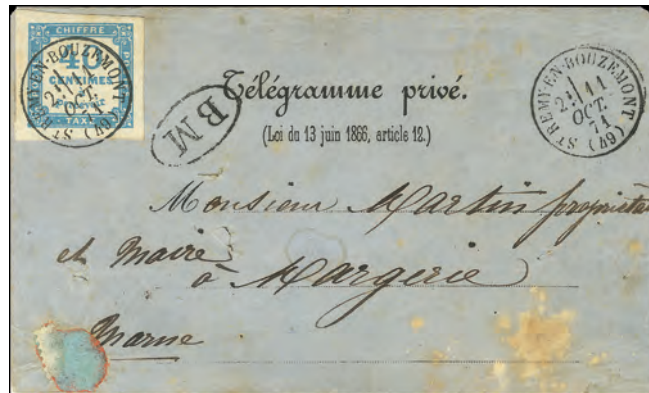 CHIFFRE
40
CENTIMES
À
Percevoir
TAXE
ST REMY-EN-BOUZEMONT (49)
2E / 11
OCT.
71
BM
Télégramme privé.
(Loi du 13 juin 1866, article 12.)
ST REMY-EN-BOUZEMONT (49)
2E / 11
OCT.
71
Monsieur Martin propriéta
et Maire
à Margerie
Marne